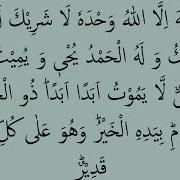 هَ اِلَّا اللهُ وَحْدَهٗ لَا شَرِيْكَ لَ
كُ وَ لَهُ الْحَمْدُ يُحْىٖ وَ يُمِيْتُ
لَّا يَمُوْتُ اَبَدًا اَبَدًاؕ ذُو الْجَ
امِؕ بِيَدِهِ الْخَيْرُؕ وَهُوَ عَلٰى كُلِّ
قَدِيْرٌؕ